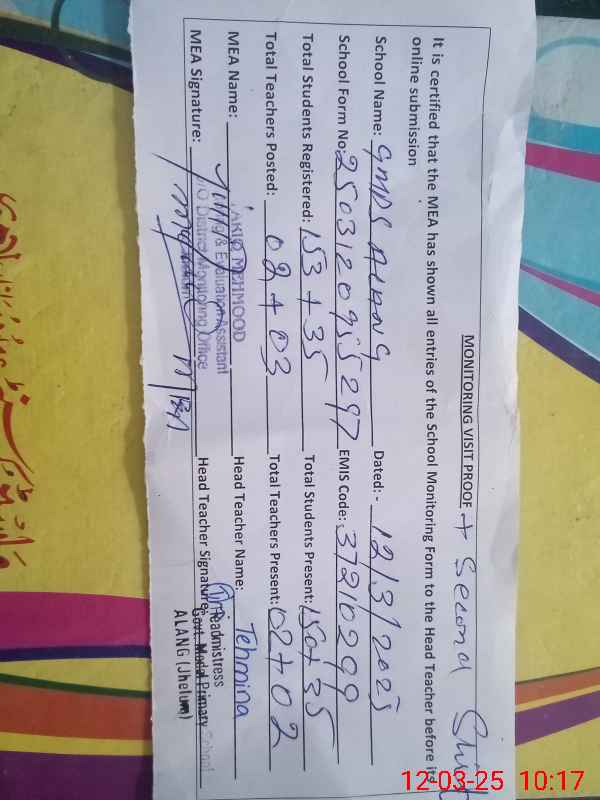 MONITORING VISIT PROOF + Second Shift
It is certified that the MEA has shown all entries of the School Monitoring Form to the Head Teacher before its
online submission
School Name: GMPS ALANG Dated:- 12/3/2025
School Form No: 2503120955297 EMIS Code: 37210299
Total Students Registered: 153 + 35 Total Students Present: 150+35
Total Teachers Posted: 02 + 03 Total Teachers Present: 02+02
MEA Name: Head Teacher Name: Tehmina
MEHMOOD
& Evaluation Assistant
O District Monitoring Office
MEA Signature: Head Teacher Signature:
Headmistress
Govt. Model Primary School
ALANG (Jhelum)
12-03-25 10:17